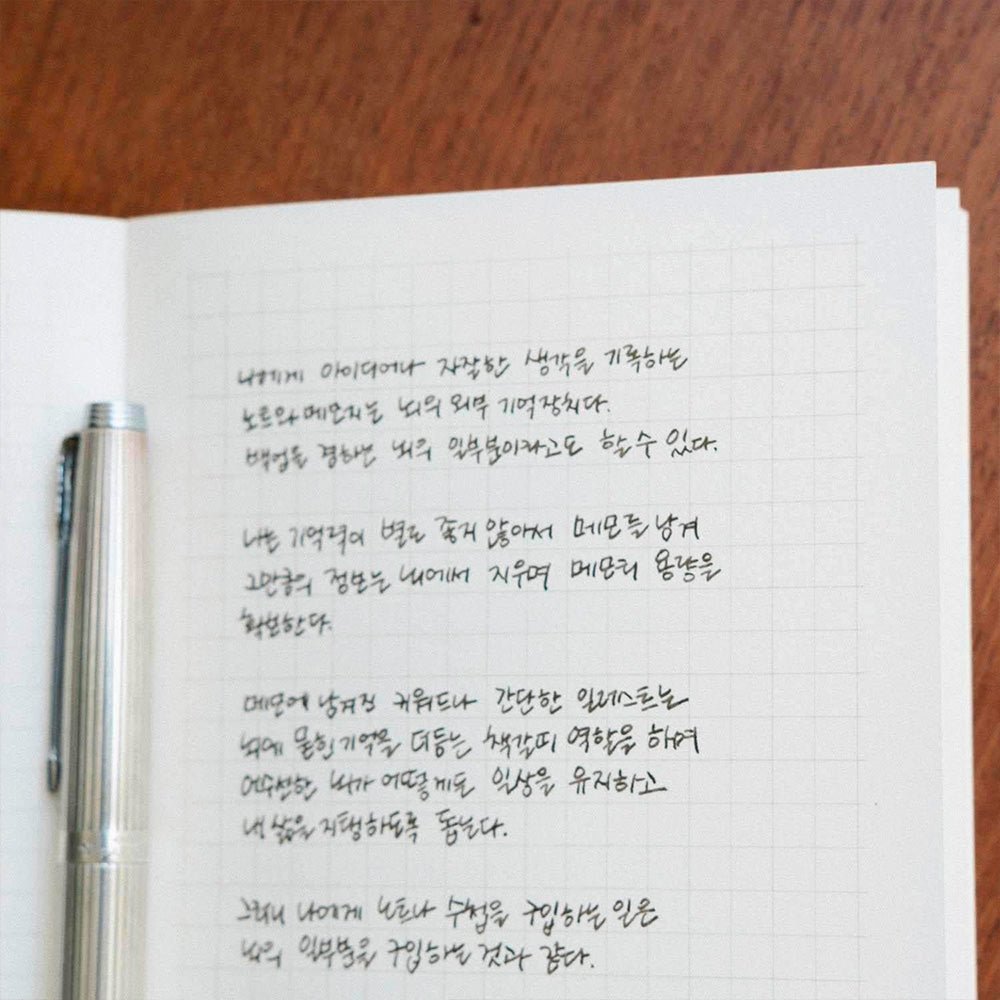 나에게 아이디어나 자잘한 생각을 기록하는
노트와 메모지는 뇌의 외부 기억장치다.
백업을 겸하는 뇌의 일부분이라고도 할 수 있다.
나는 기억력이 별로 좋지 않아서 메모를 남겨
그만큼의 정보는 뇌에서 지우며 메모리 용량을
확보한다.
메모에 남겨진 키워드나 간단한 일러스트는
뇌에 묻힌 기억을 더듬는 책갈피 역할을 하며
어수선한 뇌가 어떻게든 일상을 유지하고
내 삶을 지탱하도록 돕는다.
그러니 나에게 노트나 수첩을 구입하는 일은
뇌의 일부분을 구입하는 것과 같다.